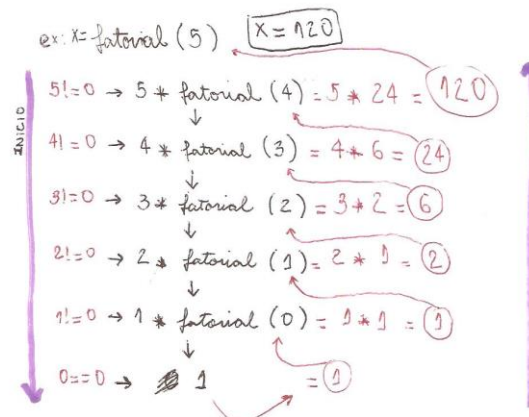 ex: x = fatorial (5) x = 120
INICIO
5!=0 → 5 * fatorial (4) = 5 * 24 = 120
4!=0 → 4 * fatorial (3) = 4 * 6 = 24
3!=0 → 3 * fatorial (2) = 3 * 2 = 6
2!=0 → 2 * fatorial (1) = 2 * 1 = 2
1!=0 → 1 * fatorial (0) = 1 * 1 = 1
0==0 → 1 = 1